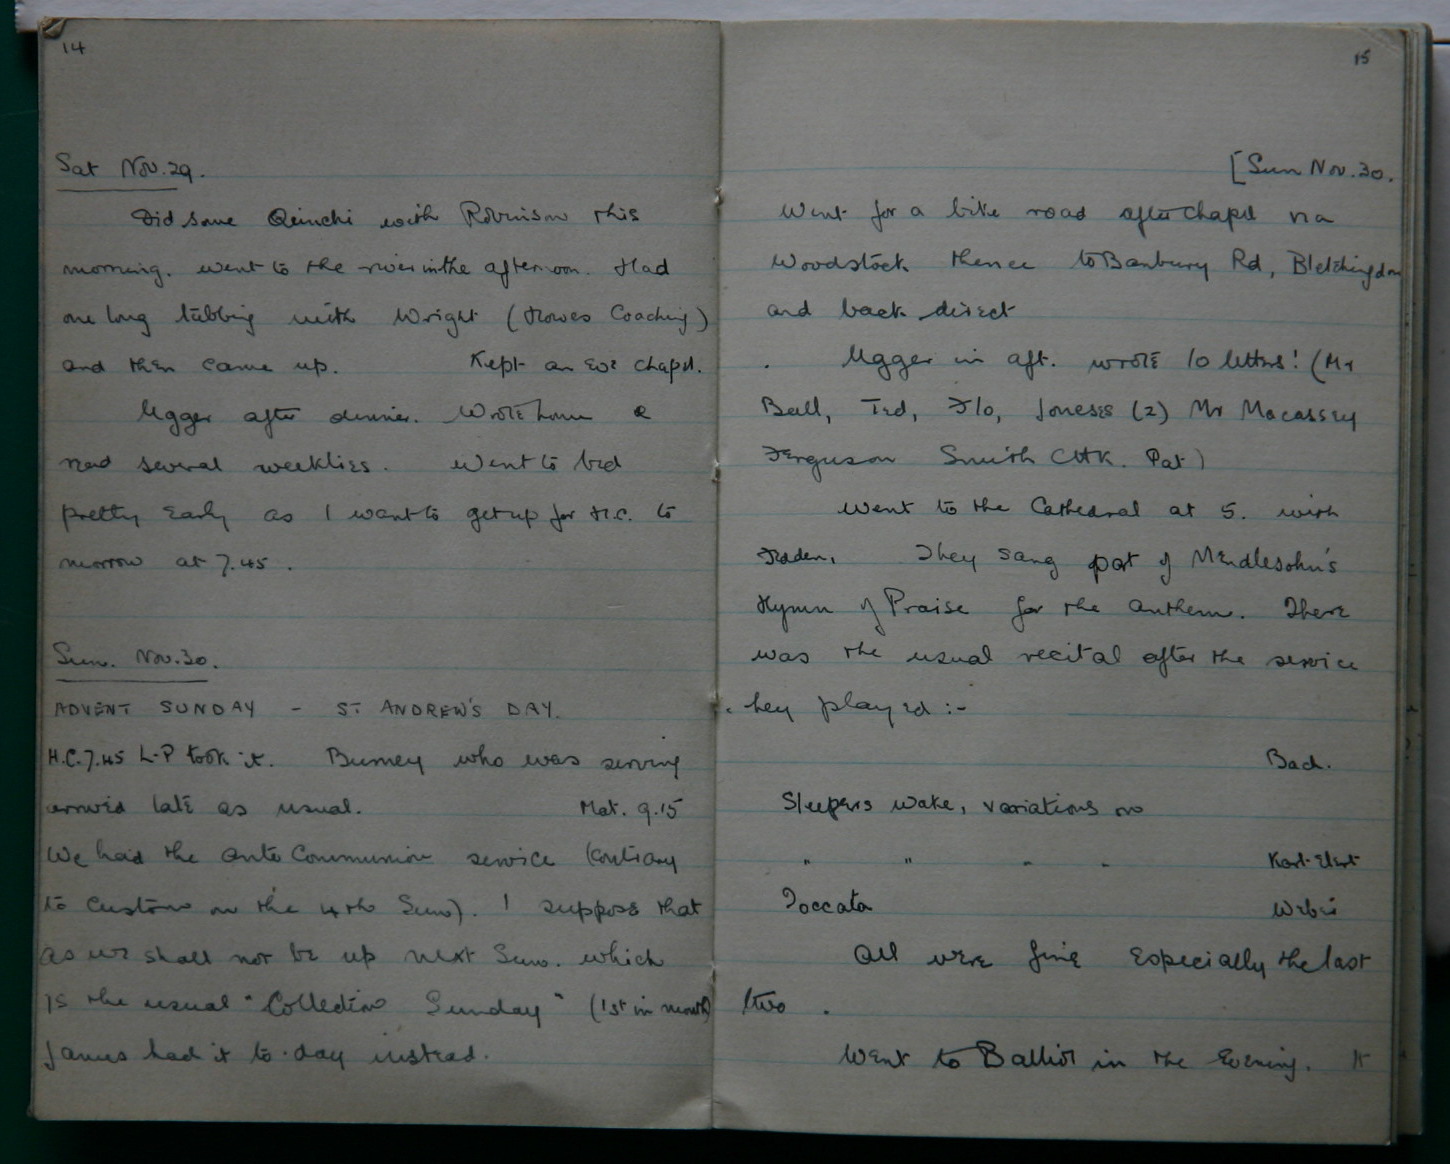 14
Sat Nov. 29.
Did some with Robinson this
morning. Went to the river in the afternoon. Had
one long tubbing with Wright (Howes Coaching)
and then came up. Kept an Eve chapel.
Ugger after dinner. Wrote home &
read several weeklies. Went to bed
pretty early as I want to get up for H.C. to
morrow at 7.45.
Sun. Nov. 30.
ADVENT SUNDAY - ST ANDREW'S DAY.
H.C. 7.45 L-P took it. Burney who was serving
arrived late as usual. Mat. 9.15
We had the ante Communion service (contrary
to custom on the 4th Sun). I suppose that
as we shall not be up next Sun. which
is the usual "Collection Sunday" (1st in month)
James had it to-day instead.
15
[Sun Nov. 30.
Went for a bike road after chapel via
Woodstock thence to Banbury Rd, Bletchingdon
and back direct
Ugger in aft. wrote 10 letters! (Mr
Ball, Ted, Flo, Joneses (2) Mr Macassey
Ferguson Smith CHK. Pat)
Went to the Cathedral at 5. with
They sang part of Mendlesohn's
Hymn of Praise for the anthem. There
was the usual recital after the service
they played :-
Bach.
Sleepers wake, variations on
" " " " Karl-Elert
Toccata Widor
All were fine Especially the last
two.
Went to Balliol in the Evening. It